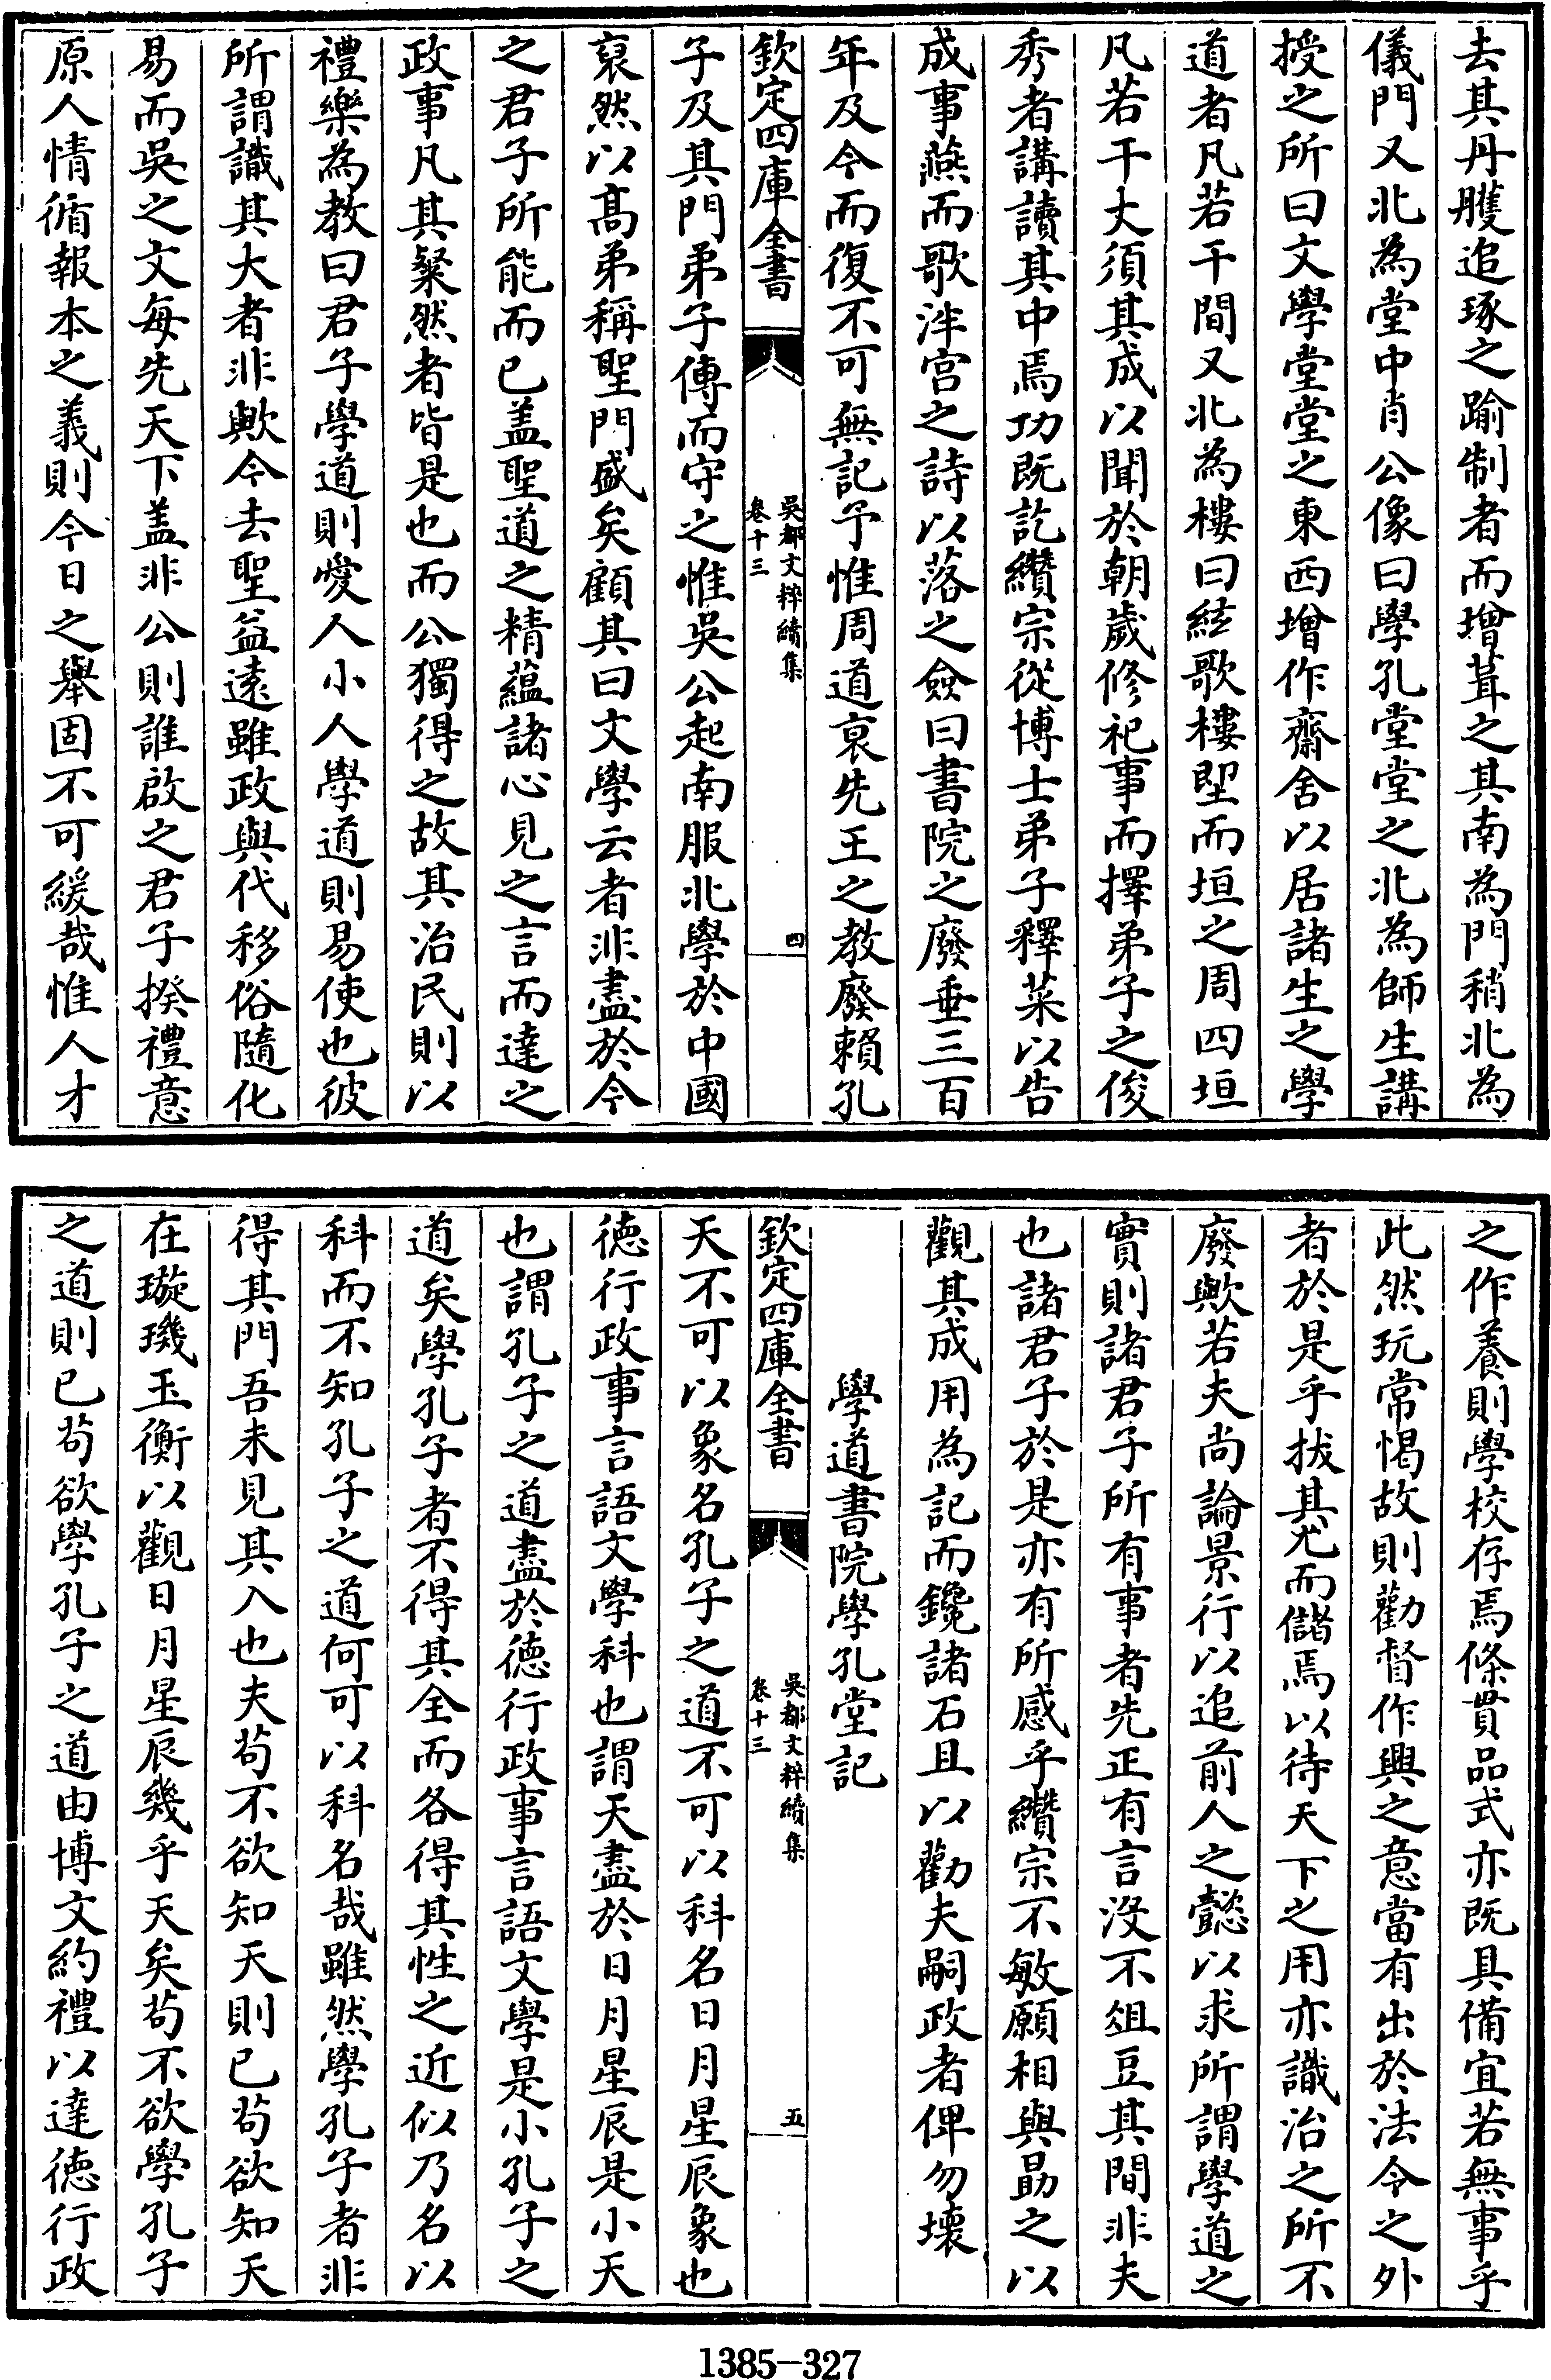 去其丹雘追琢之踰制者而增葺之其南為門稍北為
儀門又北為堂中肖公像曰學孔堂堂之北為師生講
授之所曰文學堂堂之東西增作齋舍以居諸生之學
道者凡若干間又北為樓曰絃歌樓墍而垣之周四垣
凡若干丈須其成以聞於朝歲修祀事而擇弟子之俊
秀者講讀其中焉功既訖纘宗從博士弟子釋菜以告
成事燕而歌泮宫之詩以落之僉曰書院之廢垂三百
年及今而復不可無記予惟周道衰先王之教廢賴孔
欽定四庫全書
吳都文粹續集
卷十三
四
子及其門弟子傳而守之惟吳公起南服北學於中國
裒然以高弟稱聖門盛矣顧其曰文學云者非盡於今
之君子所能而已盖聖道之精蘊諸心見之言而達之
政事凡其粲然者皆是也而公獨得之故其治民則以
禮樂為教曰君子學道則愛人小人學道則易使也彼
所謂識其大者非歟今去聖益遠雖政與代移俗隨化
易而吳之文每先天下盖非公則誰啟之君子揆禮意
原人情循報本之義則今日之舉固不可緩哉惟人才
之作養則學校存焉條貫品式亦既具備宜若無事乎
此然玩常愒故則勸督作興之意當有出於法令之外
者於是乎拔其尤而儲焉以待天下之用亦識治之所不
廢歟若夫尚論景行以追前人之懿以求所謂學道之
實則諸君子所有事者先正有言沒不俎豆其間非夫
也諸君子於是亦有所感乎纘宗不敏願相與勗之以
觀其成用為記而鑱諸石且以勸夫嗣政者俾勿壞
學道書院學孔堂記
欽定四庫全書
吳都文粹續集
卷十三
五
天不可以象名孔子之道不可以科名日月星辰象也
德行政事言語文學科也謂天盡於日月星辰是小天
也謂孔子之道盡於德行政事言語文學是小孔子之
道矣學孔子者不得其全而各得其性之近似乃名以
科而不知孔子之道何可以科名哉雖然學孔子者非
得其門吾未見其入也夫苟不欲知天則已苟欲知天
在璇璣玉衡以觀日月星辰幾乎天矣苟不欲學孔子
之道則已苟欲學孔子之道由博文約禮以達德行政
1385-327